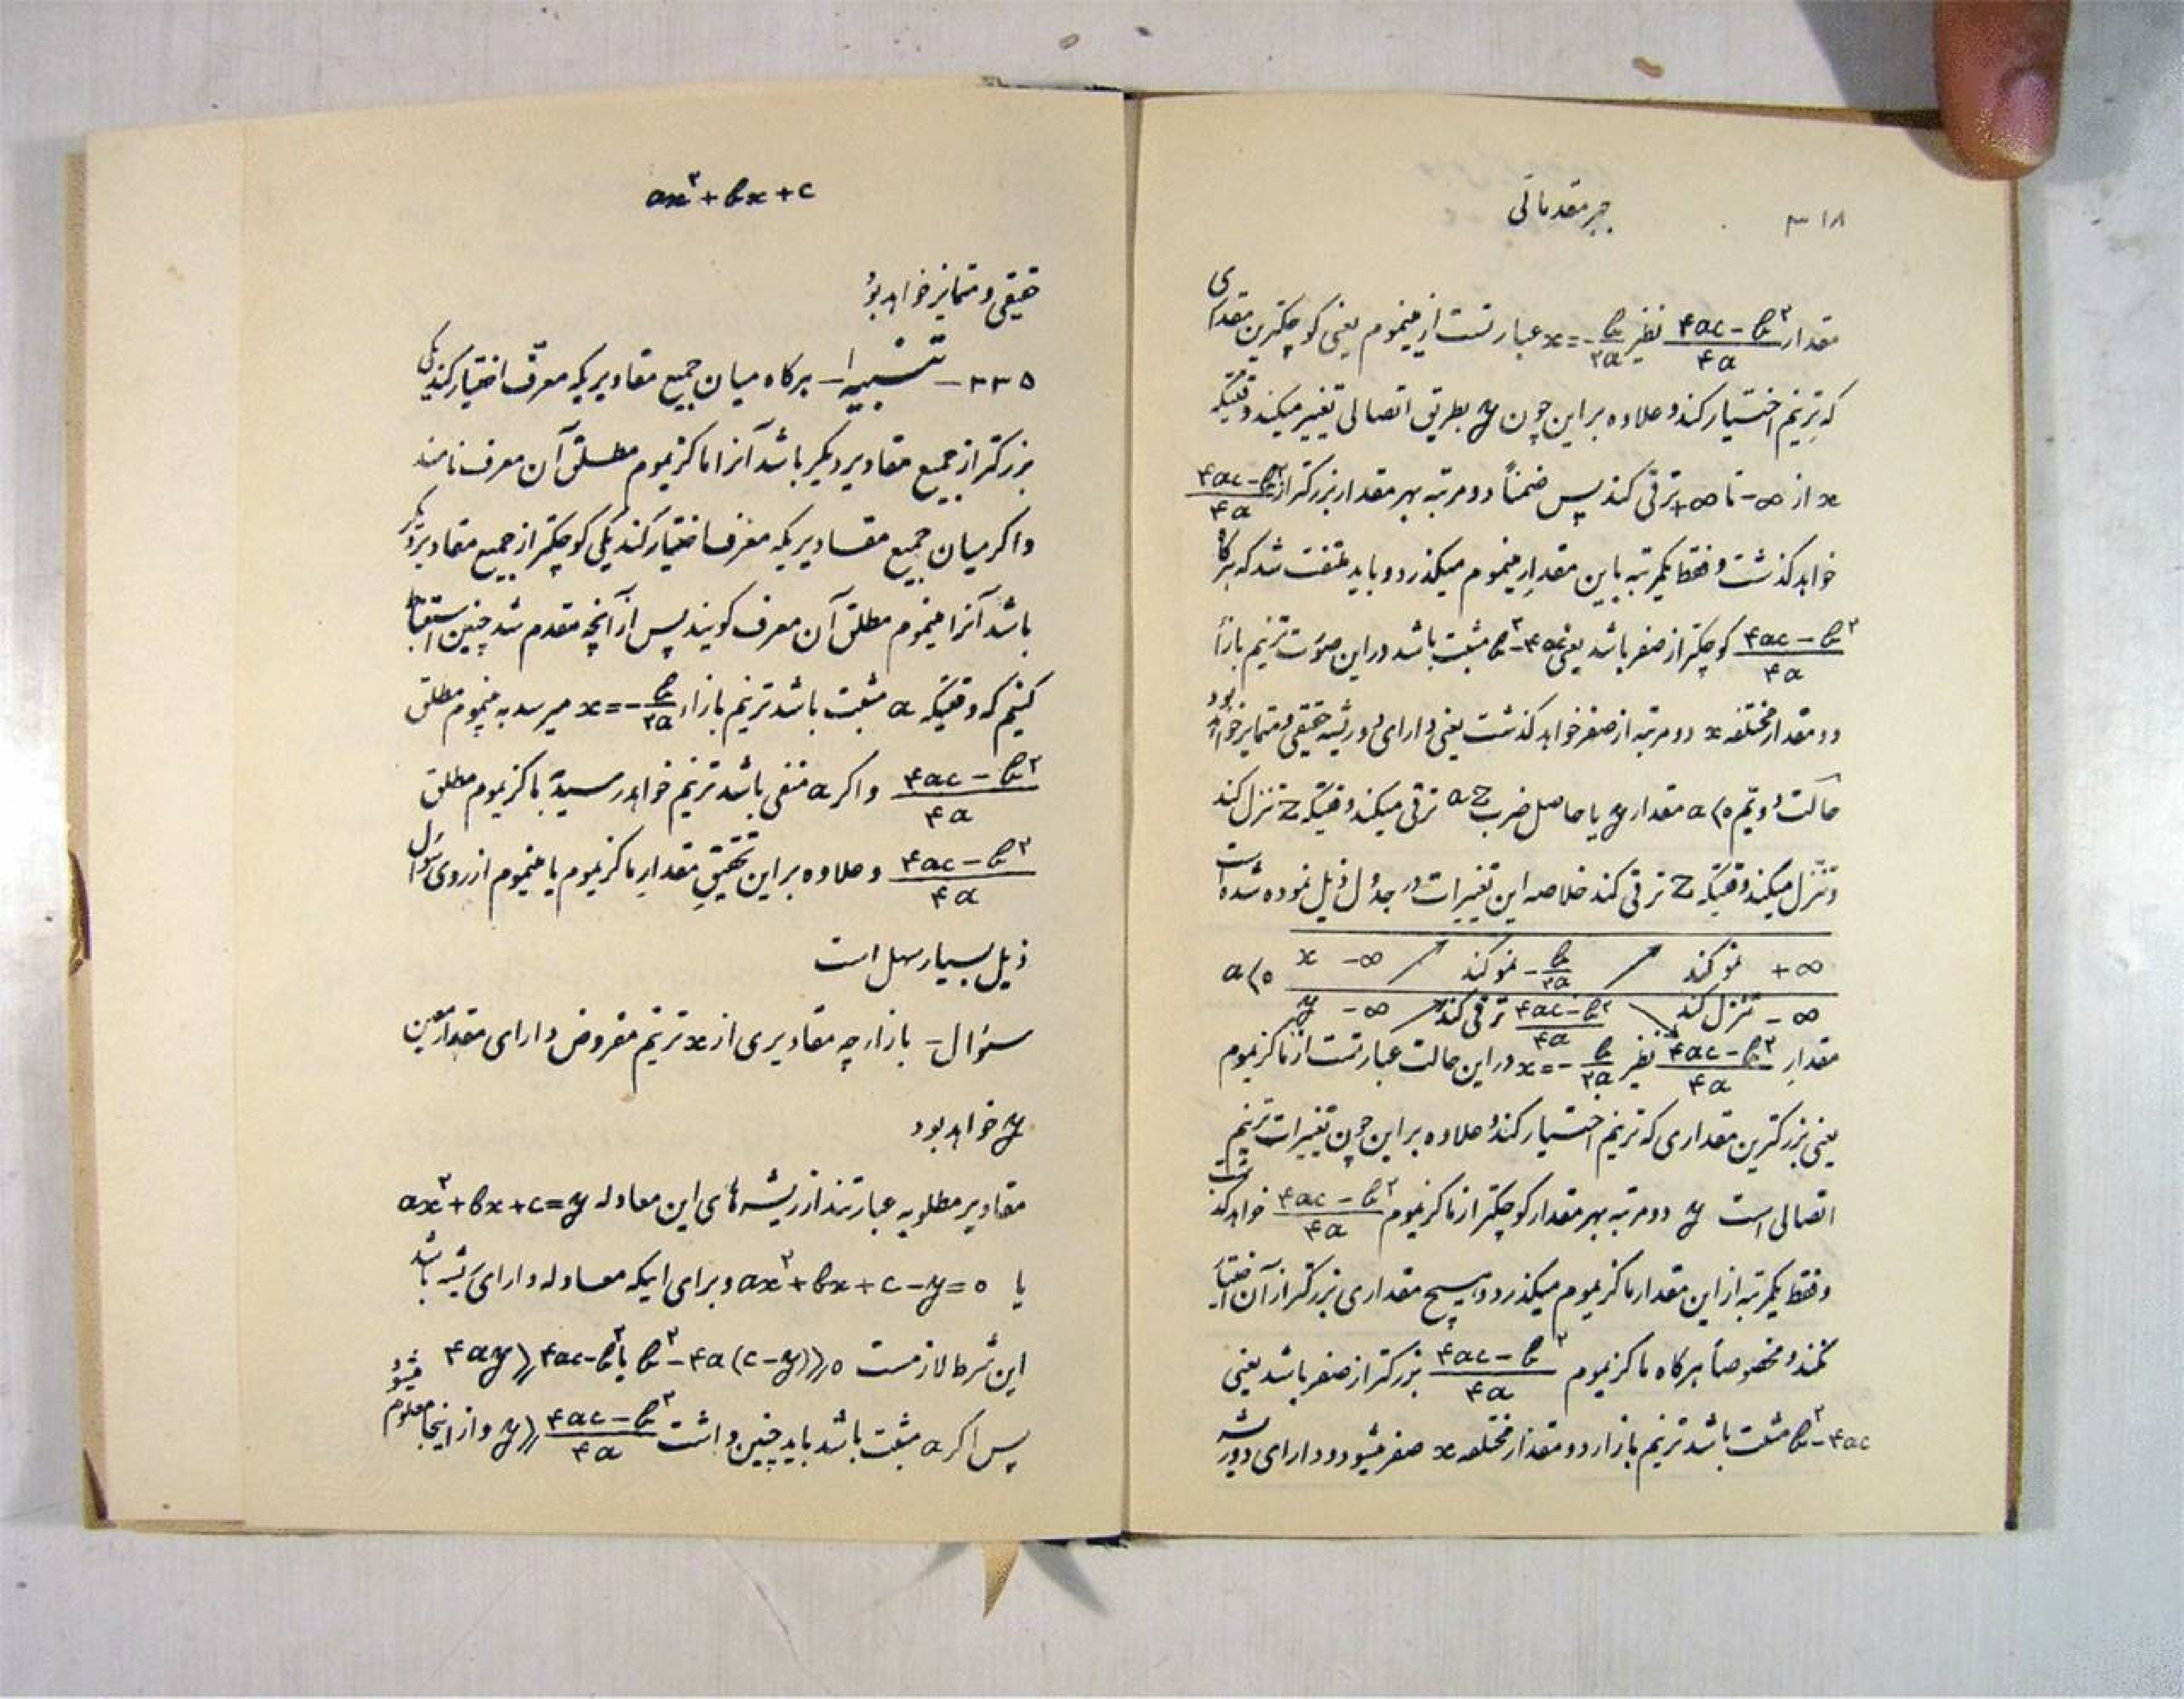 ۳۱۸ جبر مقدماتی
مقدار (۴ac-b²)/۴a نظیر x=-b/۲a عبارتست از مینیموم یعنی کوچکترین مقداری
که ترینم اختیار کند و علاوه بر این چون y بطریق اتصالی تغییر میکند وقتیکه
x از ∞- تا ∞+ ترقی کند پس ضمناً دو مرتبه بهر مقدار بزرگتر از (۴ac-b²)/۴a
خواهد کذشت و فقط یکمرتبه باین مقدارِ مینیموم میکذرد و باید ملتفت شد که هرکاه
(۴ac-b²)/۴a کوچکتر از صفر باشد یعنی b²-۴ac مثبت باشد در این صورت ترینم بازاء
دو مقدار مختلفه x دو مرتبه از صفر خواهد کذشت یعنی دارای دو ریشه حقیقی و متمایز خواهد بود
حالت دویم a⟨۰ مقدار y یا حاصل ضرب az ترقی میکند وقتیکه z تنزل کند
و تنزل میکند وقتیکه z ترقی کند خلاصه این تغییرات در جدول ذیل نموده شده است
a⟨۰ x -∞ ↗ نمو کند -b/۲a ↗ نمو کند +∞
y -∞ ↗ ترقی کند (۴ac-b²)/۴a ↘ تنزل کند -∞
مقدارِ (۴ac-b²)/۴a نظیر x=-b/۲a در این حالت عبارتست از ماکزیموم
یعنی بزرگترین مقداری که ترینم اختیار کند و علاوه بر این چون تغییرات ترینم
اتصالی است y دو مرتبه بهر مقدار کوچکتر از ماکزیموم (۴ac-b²)/۴a خواهد کذشت
و فقط یکمرتبه از این مقدار ماکزیموم میکذرد و هیچ مقداری بزرگتر از آن اختیار
نمیکند و مخصوصاً هرکاه ماکزیموم (۴ac-b²)/۴a بزرگتر از صفر باشد یعنی
b²-۴ac مثبت باشد ترینم بازاء دو مقدار مختلفه x صفر میشود و دارای دو ریشه
ax²+bx+c
حقیقی و متمایز خواهد بود
۳۳۵- تنبیه ۱- هرکاه میان جمیع مقادیریکه معرف اختیار کند یکی
بزرکتر از جمیع مقادیر دیکر باشد آنرا ماکزیموم مطلق آن معرف نامند
و اکر میان جمیع مقادیریکه معرف اختیار کند یکی کوچکتر از جمیع مقادیر دیکر
باشد آنرا مینیموم مطلق آن معرف کویند پس از آنچه مقدم شد چنین استنباط
کنیم که وقتیکه a مثبت باشد ترینم بازاء x=-b/۲a میرسد به مینیموم مطلق
(۴ac-b²)/۴a و اکر a منفی باشد ترینم خواهد رسید بماکزیموم مطلق
(۴ac-b²)/۴a و علاوه بر این تحقیقِ مقدارِ ماکزیموم یا مینیموم از روی سؤال
ذیل بسیار سهل است
سئوال- بازاء چه مقادیری از x ترینم مفروض دارای مقدار معین
y خواهد بود
مقادیر مطلوبه عبارتند از ریشه‌های این معادله ax²+bx+c=y
یا ax²+bx+c-y=۰ و برای اینکه معادله دارای ریشه باشد
این شرط لازمست b²-۴a(c-y)⟩⟩۰ یا ۴ay⟩⟩۴ac-b²
پس اکر a مثبت باشد باید چنین داشت y⟩⟩(۴ac-b²)/۴a و از اینجا معلوم میشود